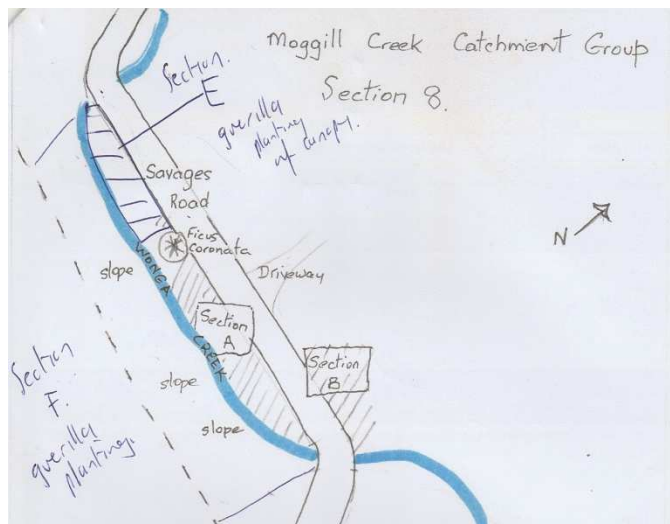 Moggill Creek Catchment Group
Section 8.
Section.
E
guerilla
planting
of canopy.
Savages
Road
Ficus
Coronata
N
WONGA
slope
Driveway
Section
A
CREEK
Section
B
slope
slope
Section
F.
guerilla
planting.